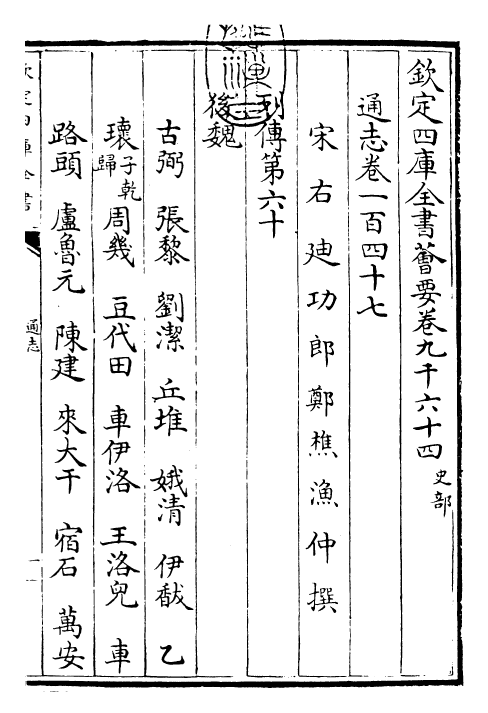 欽定四庫全書薈要卷九千六十四 史部
通志卷一百四十七
宋右廸功郎鄭樵漁仲撰
列傳第六十
後魏
古弼 張黎 劉潔 丘堆 娥清 伊馛 乙
瓌子乾歸 周幾 豆代田 車伊洛 王洛兒 車
路頭 盧魯元 陳建 來大干 宿石 萬安
欽定四庫全書
通志
一